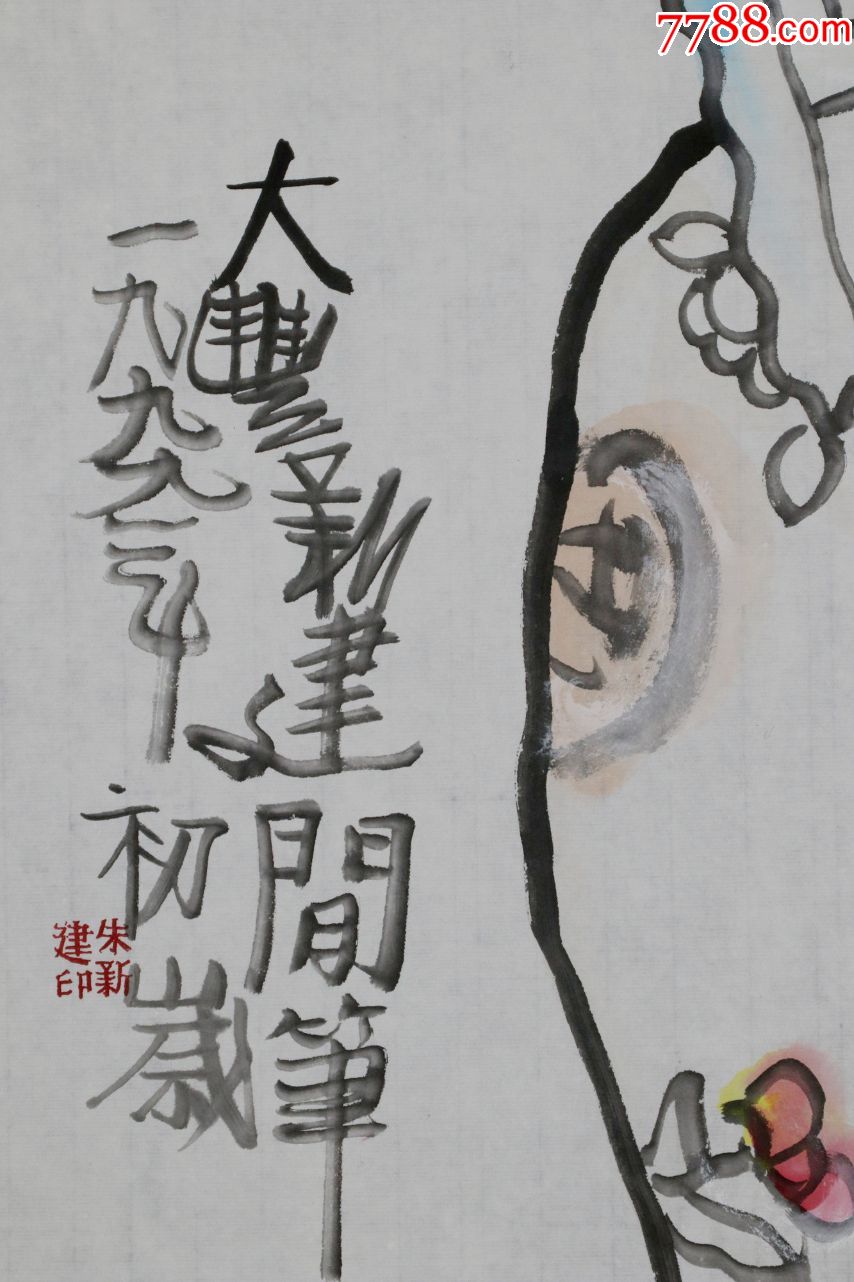 7788.com
大豐新建閒筆
一九九九年初歲
朱新
建印